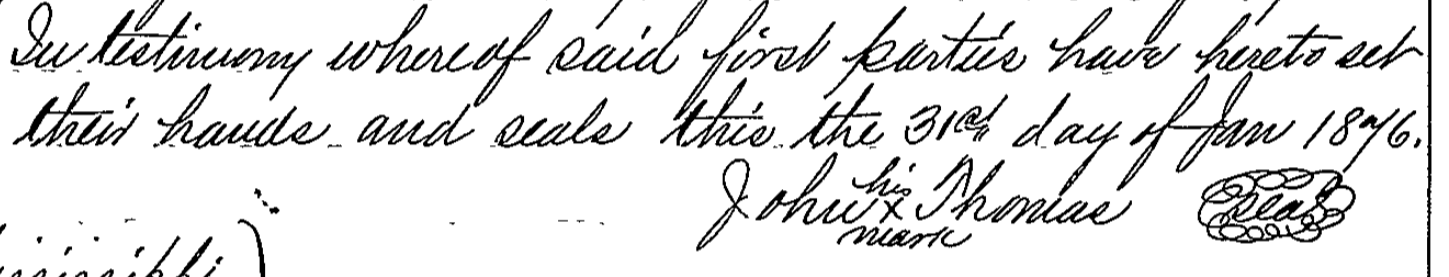 In testimony whereof said first parties have hereto set
their hands and seals this the 31st day of Jan 1876.
his
John x Thomas seal
mark
ississippi )